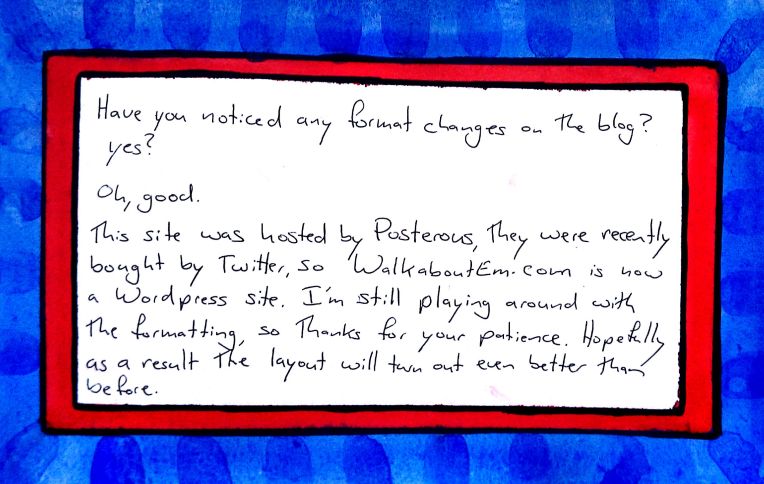 Have you noticed any format changes on the blog?
yes?
Oh, good.
This site was hosted by Posterous, They were recently
bought by Twitter, so WalkaboutEm.com is now
a Wordpress site. I'm still playing around with
the formatting, so Thanks for your patience. Hopefully
as a result The layout will turn out even better than
before.